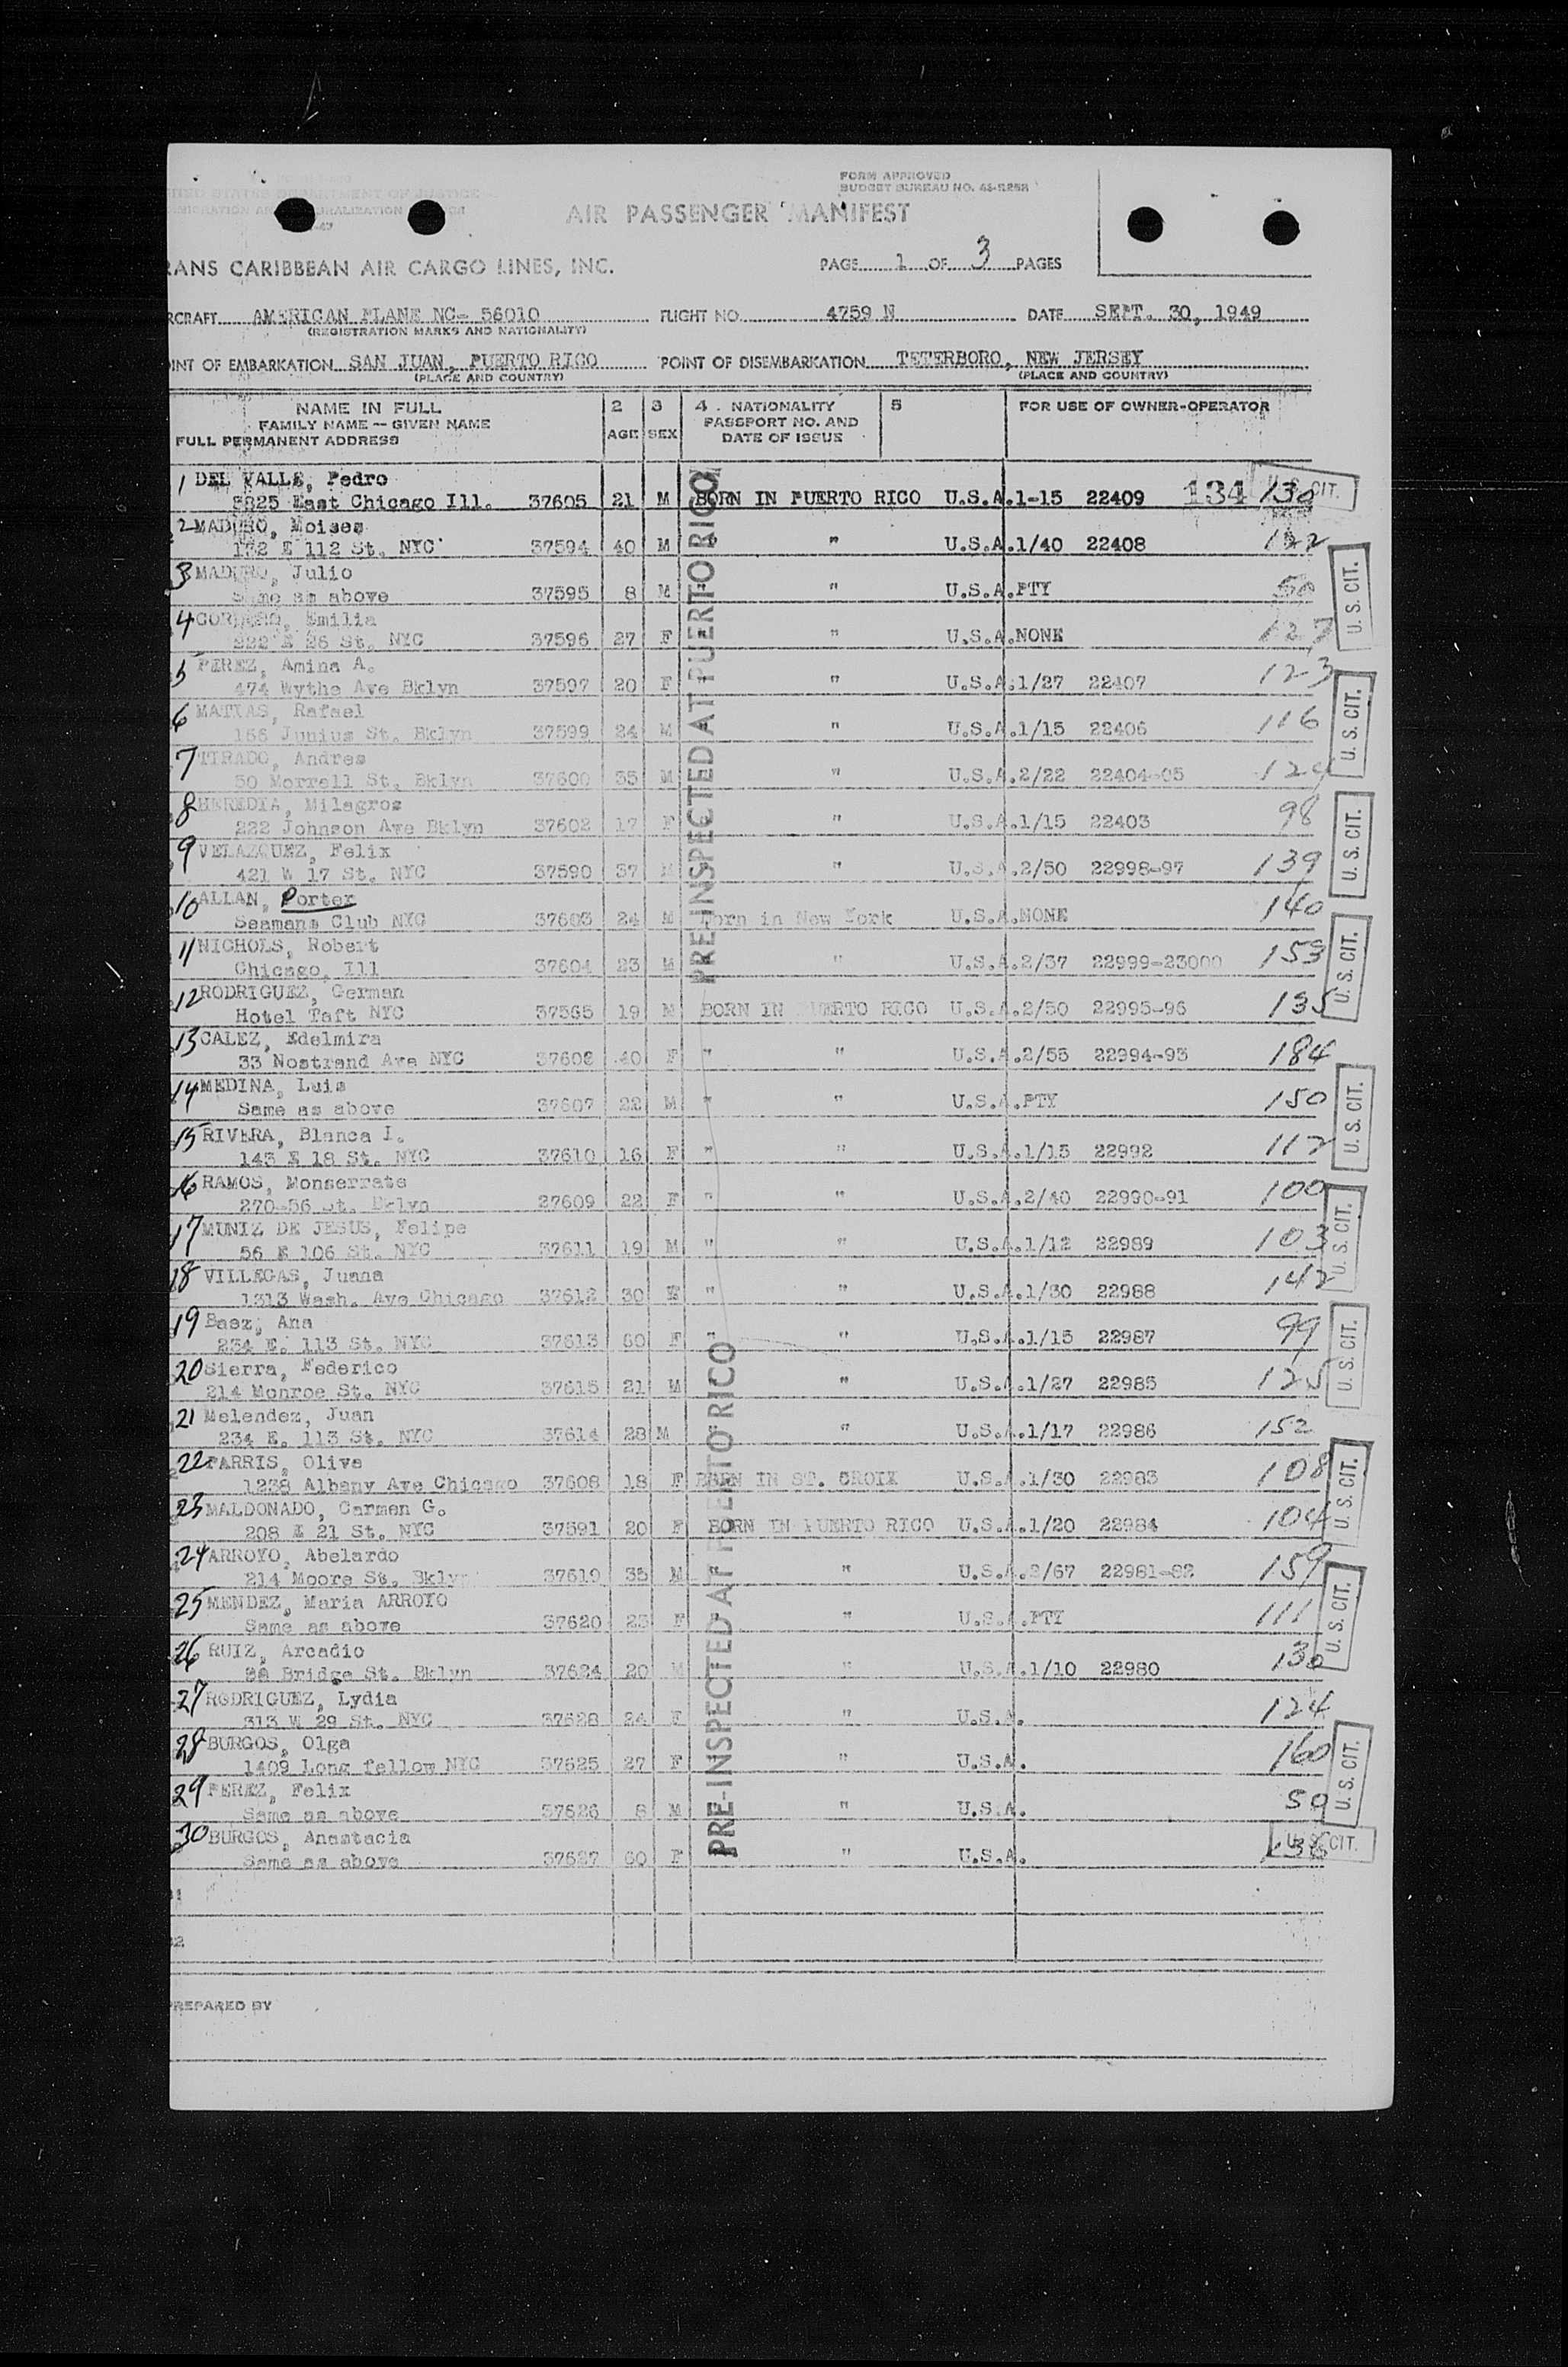 FORM APPROVED
BUDGET BUREAU NO. 43-R258
UNITED STATES DEPARTMENT OF JUSTICE
AIR PASSENGER MANIFEST
RANS CARIBBEAN AIR CARGO LINES, INC.
PAGE 1 OF 3 PAGES
RCRAFT AMERICAN PLANE NC- 56010 FLIGHT NO. 4759 N DATE SEPT. 30, 1949
(REGISTRATION MARKS AND NATIONALITY)
INT OF EMBARKATION SAN JUAN, PUERTO RICO POINT OF DISEMBARKATION TETERBORO, NEW JERSEY
(PLACE AND COUNTRY) (PLACE AND COUNTRY)
NAME IN FULL 2 3 4. NATIONALITY 5 FOR USE OF OWNER-OPERATOR
FAMILY NAME -- GIVEN NAME AGE SEX PASSPORT NO. AND
FULL PERMANENT ADDRESS DATE OF ISSUE
1 DEL VALLE, Pedro
3825 East Chicago Ill. 37605 21 M BORN IN PUERTO RICO U.S.A. 1-15 22409 134 130 U.S. CIT.
2 MADURO, Moises
132 E 112 St. NYC 37594 40 M " " U.S.A. 1/40 22408 122
3 MADURO, Julio
Same as above 37595 8 M " " U.S.A. PTY 50
4 CORDERO, Emilia
222 E 26 St. NYC 37596 27 F " " U.S.A. NONE 127
5 PEREZ, Amina A.
474 Wythe Ave Bklyn 37597 20 F " " U.S.A. 1/27 22407 123
6 MATIAS, Rafael
166 Junius St. Bklyn 37599 24 M " U.S.A. 1/15 22406 116
7 TIRADO, Andres
50 Morrell St. Bklyn 37600 35 M " U.S.A. 2/22 22404-05 124
8 HEREDIA, Milagros
222 Johnson Ave Bklyn 37602 17 F " U.S.A. 1/15 22403 98
9 VELAZQUEZ, Felix
421 W 17 St. NYC 37590 37 M " U.S.A. 2/50 22998-97 139
10 ALLAN, Porter
Seamans Club NYC 37603 24 M Born in New York U.S.A. NONE 140
11 NICHOLS, Robert
Chicago, Ill 37604 23 M " U.S.A. 2/37 22999-23000 153
12 RODRIGUEZ, German
Hotel Taft NYC 37565 19 M BORN IN PUERTO RICO U.S.A. 2/50 22995-96 135
13 CALEZ, Edelmira
33 Nostrand Ave NYC 37606 40 F " " U.S.A. 2/55 22994-93 184
14 MEDINA, Luis
Same as above 37607 22 M " " U.S.A. PTY 150
15 RIVERA, Blanca I.
145 E 18 St. NYC 37610 16 F " " U.S.A. 1/15 22992 112
16 RAMOS, Monserrate
270-56 St. Bklyn 27609 22 F " " U.S.A. 2/40 22990-91 100
17 MUNIZ DE JESUS, Felipe
56 E 106 St. NYC 37611 19 M " " U.S.A. 1/12 22989 103
18 VILLEGAS, Juana
1313 Wash. Ave Chicago 37612 30 F " " U.S.A. 1/30 22988 142
19 Baez, Ana
234 E. 113 St. NYC 37613 60 F " " U.S.A. 1/15 22987 99
20 Sierra, Federico
214 Monroe St. NYC 37615 21 M " U.S.A. 1/27 22985 125
21 Melendez, Juan
234 E. 113 St. NYC 37614 28 M " " U.S.A. 1/17 22986 152
22 PARRIS, Olive
1238 Albany Ave Chicago 37608 18 F BORN IN ST. CROIX U.S.A. 1/30 22983 108
23 MALDONADO, Carmen G.
208 E 21 St. NYC 37591 20 F BORN IN PUERTO RICO U.S.A. 1/20 22984 104
24 ARROYO, Abelardo
214 Moore St. Bklyn 37619 35 M " U.S.A. 2/67 22981-82 159
25 MENDEZ, Maria ARROYO
Same as above 37620 23 F " U.S.A. PTY 111
26 RUIZ, Arcadio
Bridge St. Bklyn 37624 20 M " U.S.A. 1/10 22980 130
27 RODRIGUEZ, Lydia
313 W 29 St. NYC 37628 24 F " U.S.A. 124
28 BURGOS, Olga
1409 Long fellow NYC 37625 27 F " U.S.A. 160
29 PEREZ, Felix
Same as above 37626 8 M " U.S.A. 50
30 BURGOS, Anastacia
Same as above 37627 60 F " U.S.A. 138 U.S. CIT.
PREPARED BY
PRE-INSPECTED AT PUERTO RICO
PRE-INSPECTED AT PUERTO RICO
U.S. CIT.
U.S. CIT.
U.S. CIT.
U.S. CIT.
U.S. CIT.
U.S. CIT.
U.S. CIT.
U.S. CIT.
U.S. CIT.
U.S. CIT.